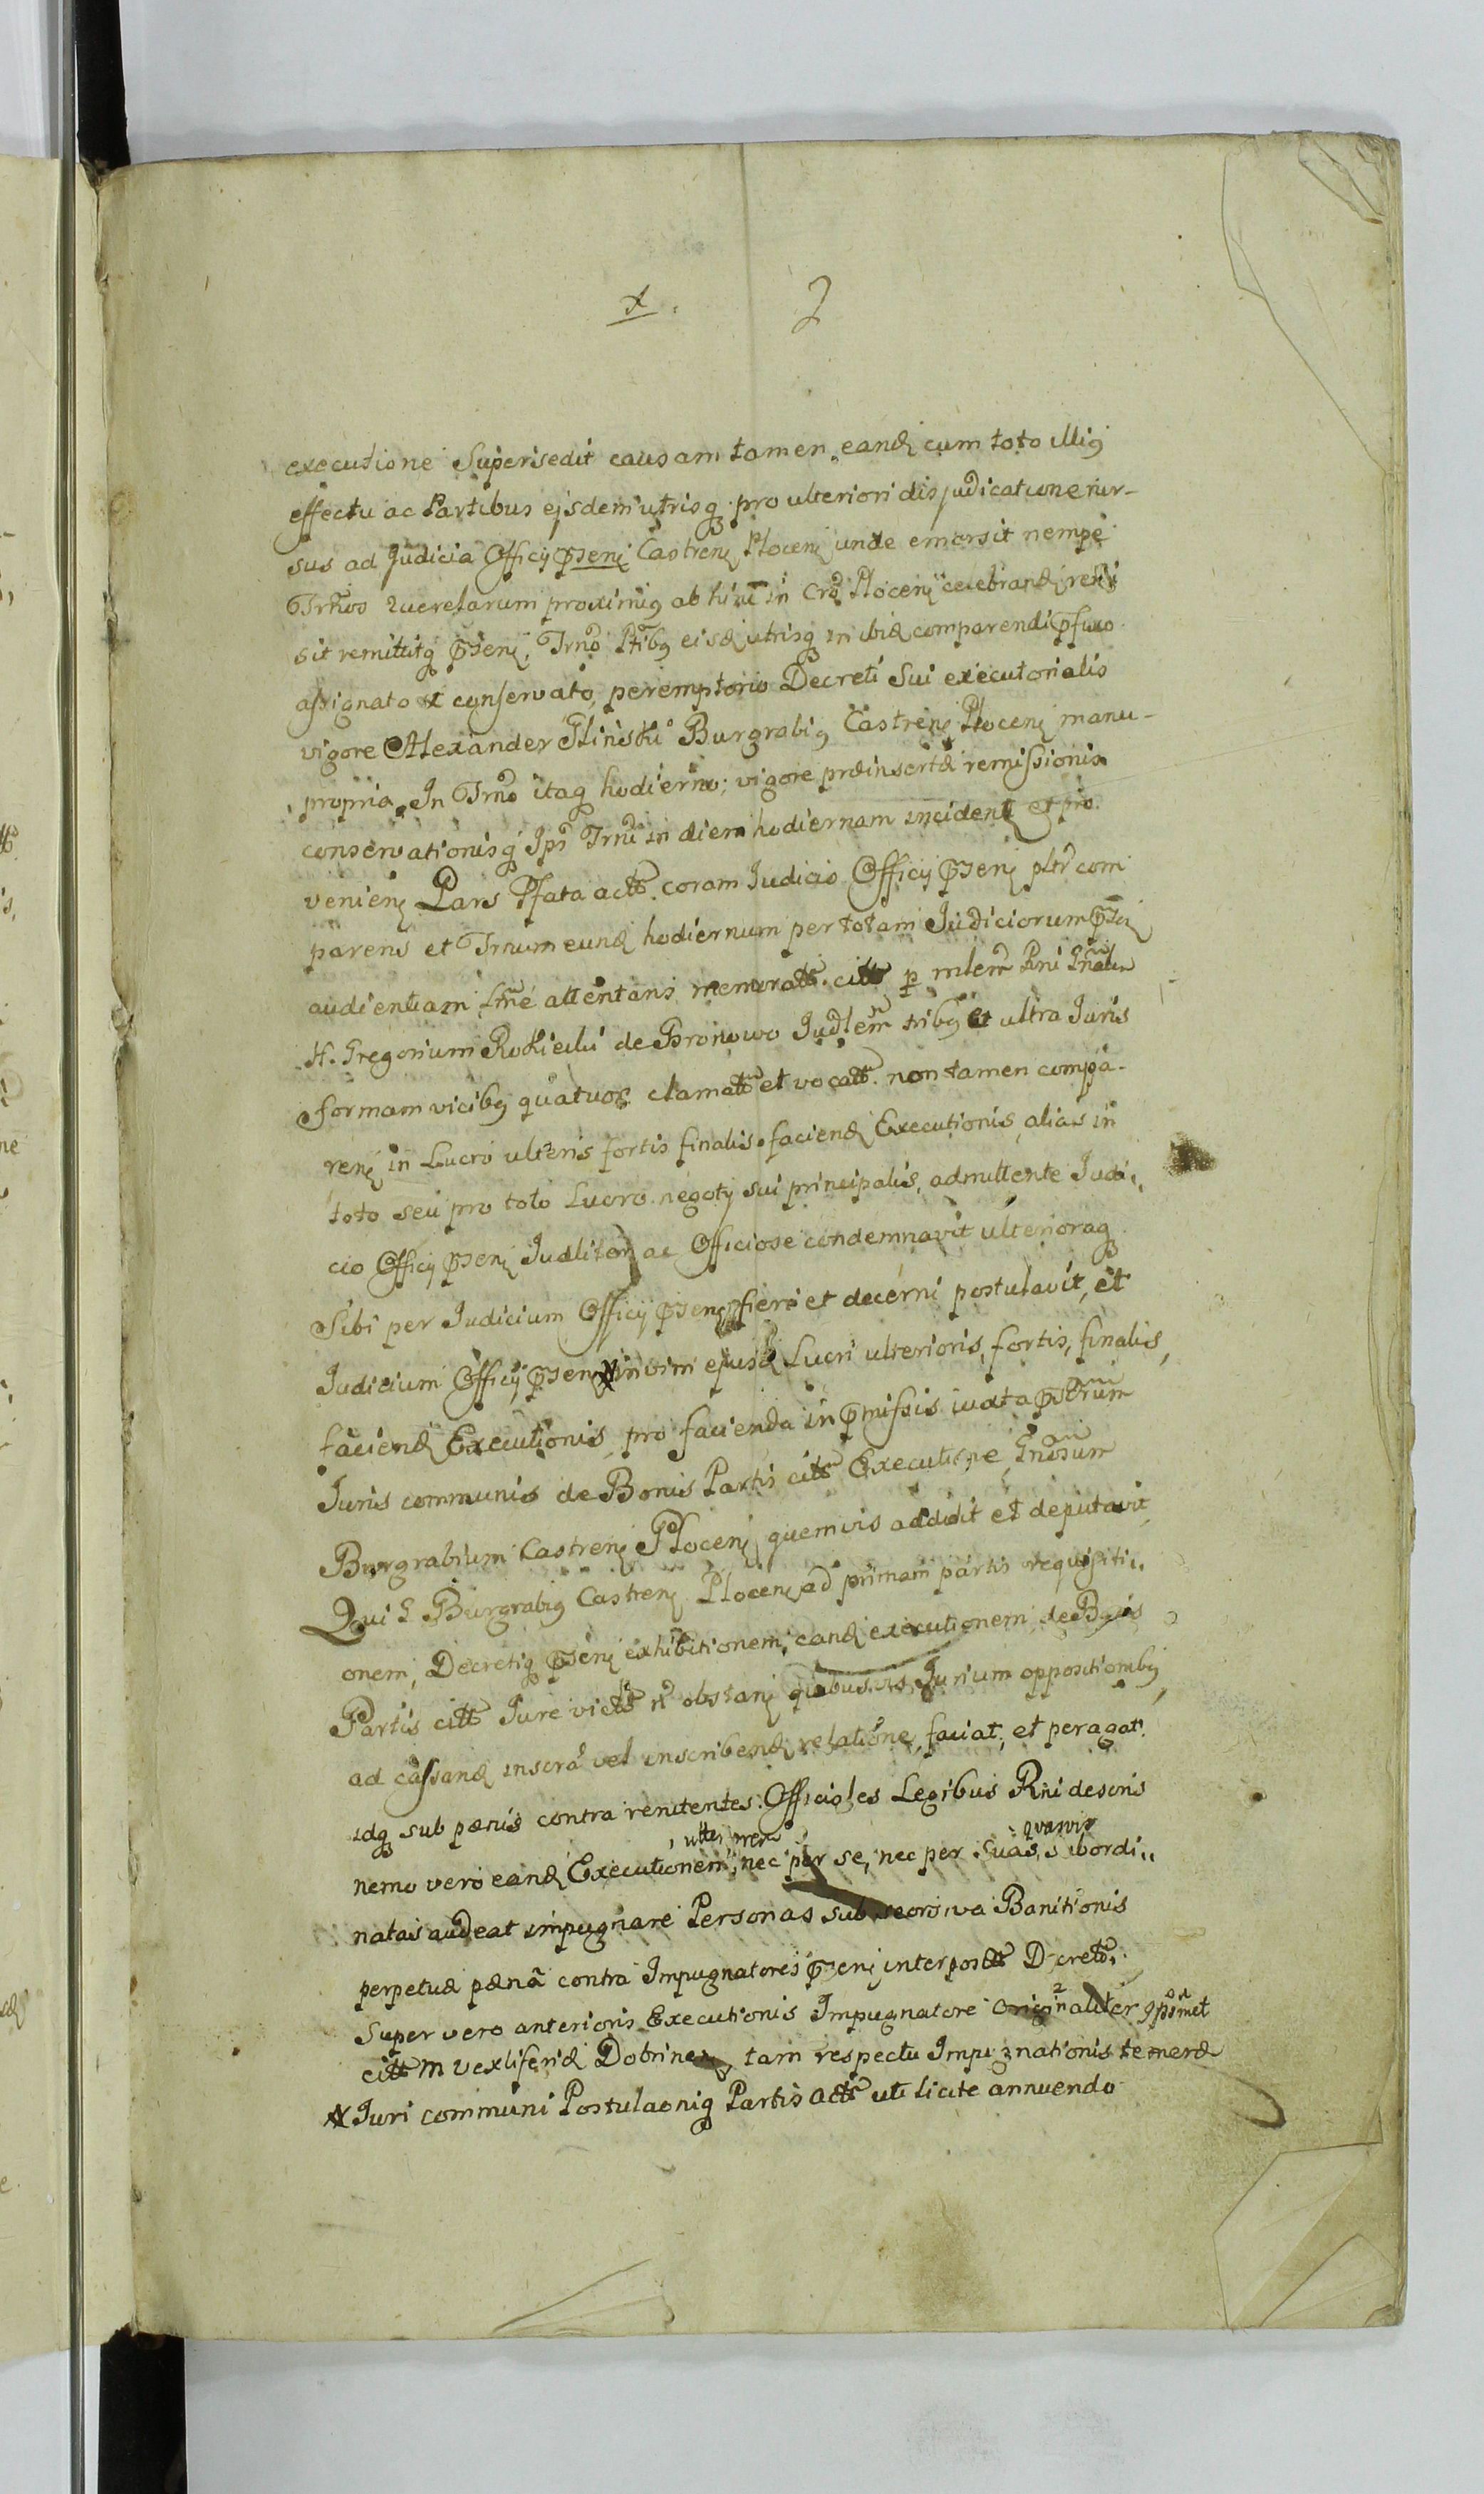 x. 2
executione Supersedit causam tamen eand cum toto illiq
effectu ac Partibus ejsdem utrisq pro ulteriori disjudicatione rur-
sus ad Judicia Officij pseni Castreni Ploceni unde emersit nempe
Trnos querelarum proximiq ab hinc in Cro Ploceni celebrand
sit remittitq pseni, Trno Ptibq eisd utrisq in ibid comparendi pfuco
assignato et conservato, peremptorio Decreti Sui executorialis
vigore Alexander Gliński Burgrabiq Castreni Ploceni manu-
propria. In Trno itaq hodierno; vigore præinsertæ remissionis
conservationisq Ipi Trni in diem hodiernam incident et pro
venieni Pars Pfata actt. coram Judicio Officij pseni pltr com
parens et Trnum eund hodiernum per totam Judiciorum psen
audientiam Ltmé attentans memoratt. citt p mlem Rni Gnalem
H. Gregorium Rokicki de Bronowo Judlem tribq et ultra Juris
formam vicibq quatuor clamatt et vocatt. non tamen compa-
reni in Lucro ulteris fortis finalis faciend Executionis, alias in
toto seu pro toto Lucro negotij sui principalis, admittente Judi„
cio Officij pseni Judliter ac Officiose condemnavit ulterioraq
Sibi per Judicium Officij pseni fieri et decerni postulavit, et
Judicium Officij pseni X in vim ejusd Lucri ulterioris, fortis, finalis,
faciend Executionis, pro facienda in pmissis juxta pscrum
Juris communis de Bonis Partis citt Executione, Gnosum
Burgrabium Castreni Ploceni quemvis addidit et deputavit,
Qui G Burgrabiq Castreni Ploceni ad primam partis requisiti„
onem, Decretiq pseni exhibitionem, eand executionem de Bonis
Partis citt Jure victt n obstani quibusvis Jurium oppositionibq,
ad cassand inscra vel inscribend relatione, faciat, et peragat.
idq sub pænis contra renitentes Officiales Legibus Rni descris
nemo vero eand Executionem, ulteriorem nec per se, nec per Suas, quasvis subordi„
natas audeat impugnare Personas sub seorsiva Banitionis
perpetuæ pænâ contra Impugnatores pseni interposit Decrett.
Super vero anterioris Executionis Impugnatore originaliter ipsomet
citt M Vexliferidæ Dobrinen, tam respectu Impugnationis temeræ
X Juri communi Postulaoniq Partis actt uti licite annuendo